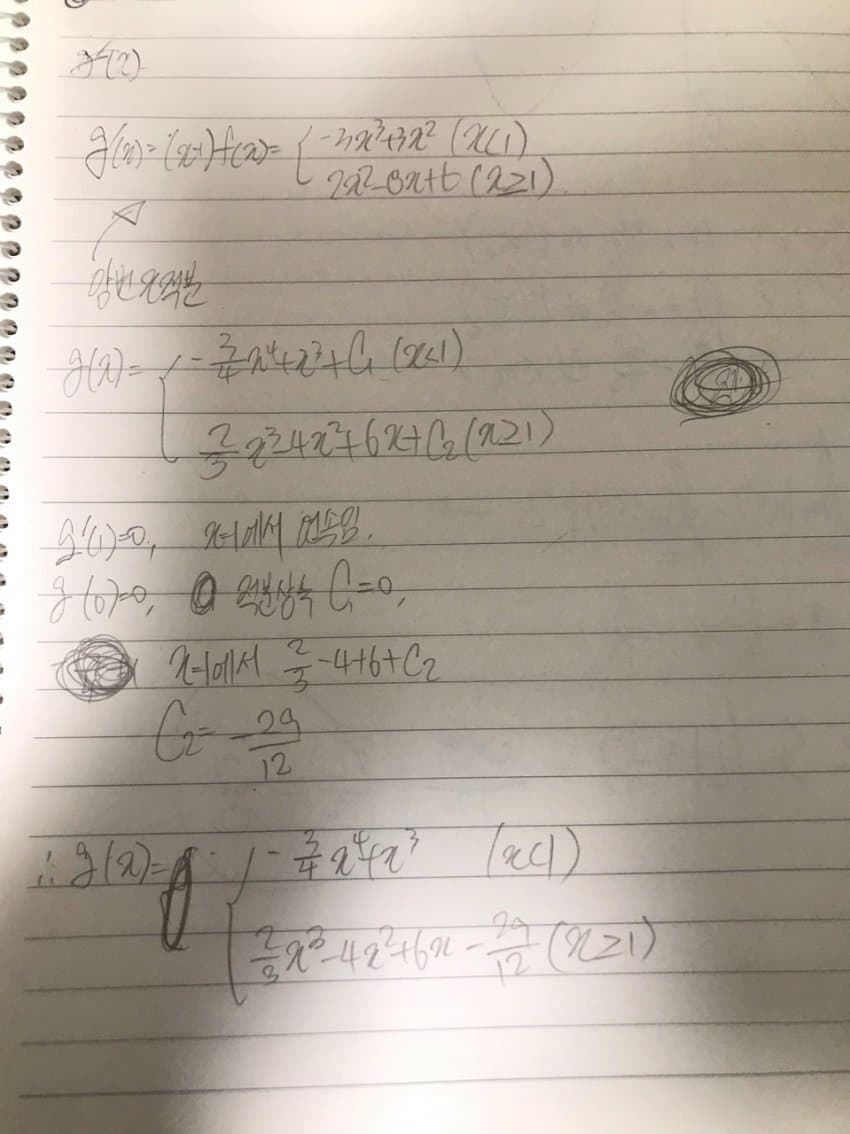 g'(x)
g'(x)=(x-1)f(x)= { -3x³+3x² (x<1)
2x²-8x+6 (x≥1)
양변 x적분
g(x)= { -3/4 x⁴+x³+C₁ (x<1)
2/3 x³-4x²+6x+C₂ (x≥1)
g'(1)=0, x=1에서 연속임.
g(0)=0, 적분상수 C₁=0,
x=1에서 2/3-4+6+C₂
C₂=-29/12
∴ g(x)= { -3/4 x⁴+x³ (x<1)
2/3 x³-4x²+6x-29/12 (x≥1)